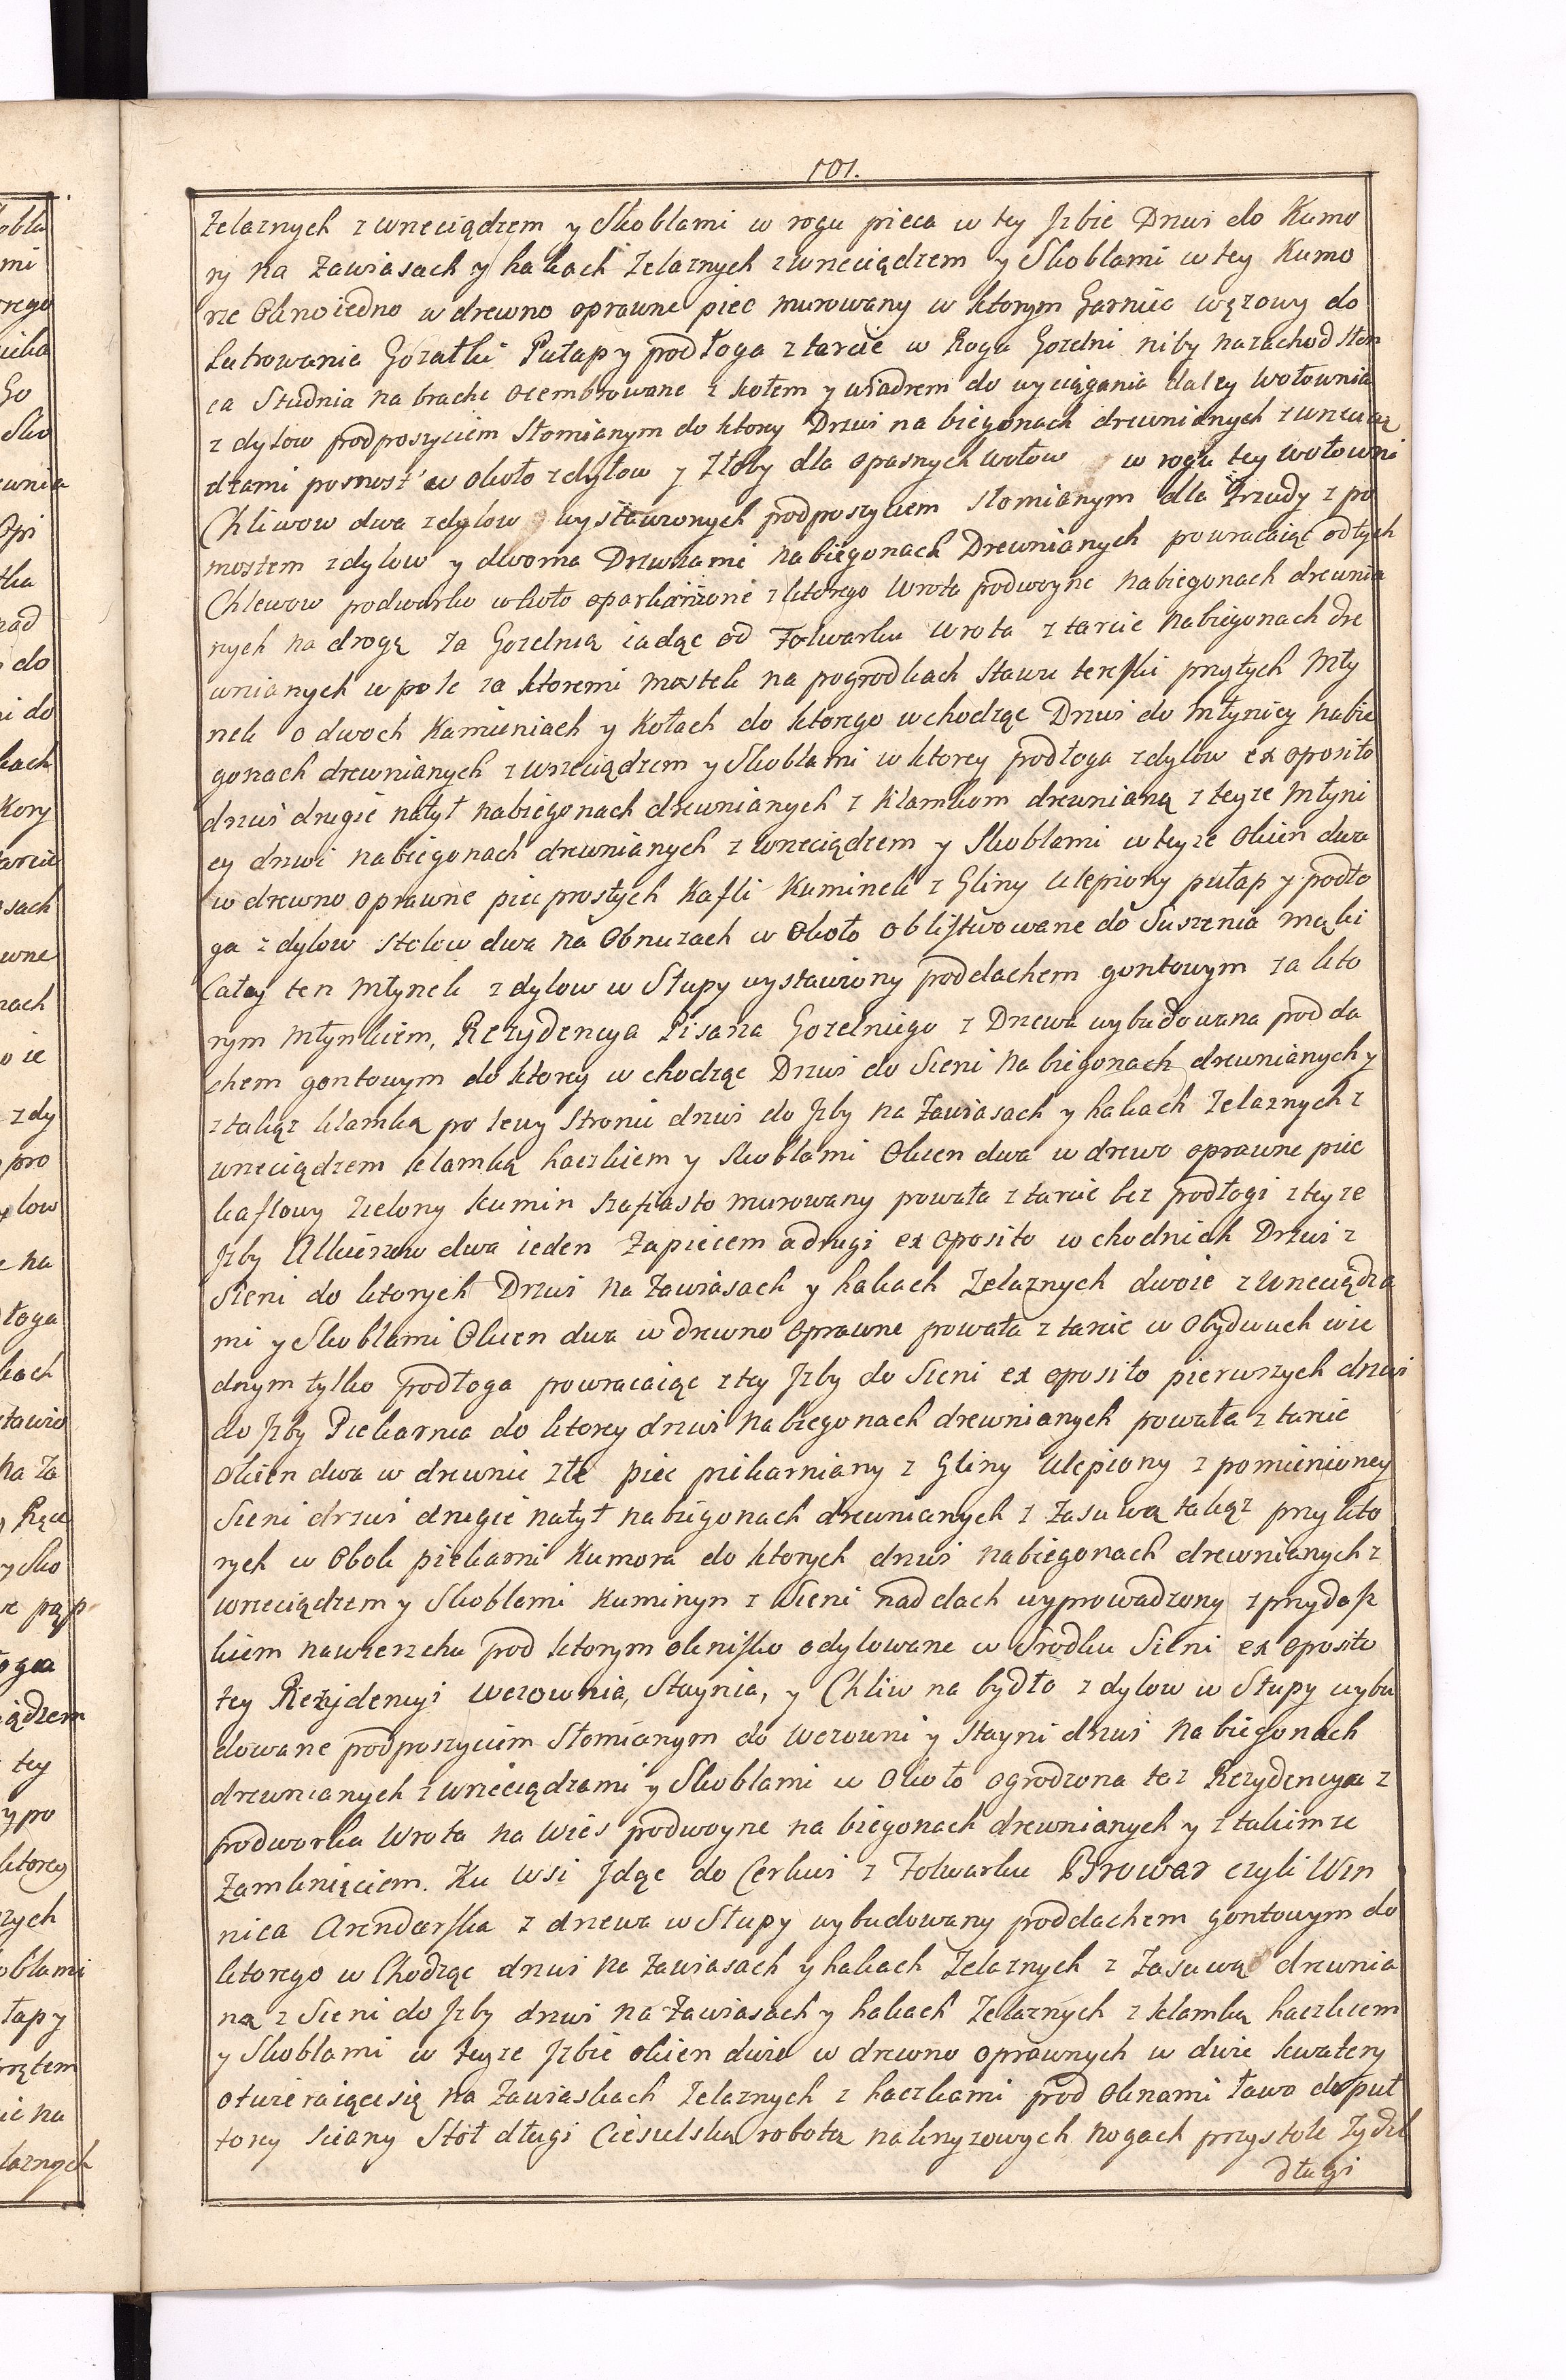 101.
Zelaznych z wrzeciądzem y Skoblami w rogu pieca w tey Jzbie Drzwi do Kumo
ry na Zawiasach y hakach Zelaznych z wrzeciądzem y Skoblami w tey Kumo
rze Okno iedno w drewno oprawne piec murowany w ktorym Garniec wężowy do
Lutrowania Gorzałki Pułap y podłoga z tarcic w Rogu Gorzelni niby na zachod słon
ca Studnia na brache ocembrowane z kołem y wiadrem do wyciągania daley Wołownia
z dylow pod poszyciem Słomianym do ktory Drzwi na biegonach drewnianych z wrzecią
dzami pomost w około z dylow y Złoby dla opasnych wołow w rogu tey wołowni
Chliwow dwa z dylow wystawionych pod poszyciem słomianym dla Trzudy z po
mostem z dylow y dwoma Drzwkami na biegonach Drewnianych powracaiąc od tych
Chlewow podwurko wkoło oparkanione z ktorego Wrota podwoyne na biegonach drewnia
nych na drogę za Gorzelnią iadąc od Folwarku Wrota z tarcic na biegonach dre
wnianych w pole za ktoremi mostek na pogrodkach Stawu tenſki przytych Mły
nek o dwoch Kamieniach y Kołach do ktorego wchodząc Drzwi do Młynicy na bie
gonach drewnianych z wrzeciądzem y Skoblami w ktorey podłoga z dylow ex oposito
drzwi drugie natył na biegonach drewnianych z klamkom drewnianą z teyze Młyni
cy drzwi na biegonach drewnianych z wrzeciądzem y Skoblami w teyze Okien dwa
w drewno oprawne piec prostych Kafli Kuminek z Gliny Ulepiony pułap y podło
ga z dylow stolow dwa na Obnuzach w Około obliſtwowane do Suszenia mąki
Cały ten Młynek z dylow w Słupy wystawiony pod dachem gontowym za kto
rym Młynkiem, Rezydencya Pisarza Gorzelniego z Drzewa wybudowana pod da
chem gontowym do ktorey wchodząc Drzwi do Sieni na biegonach drewnianych y
z taką klamką po lewy Stronie drzwi do Jzby na Zawiasach y hakach Zelaznych z
wrzeciądzem klamką haczkiem y Skoblami Okien dwa w drewo oprawne piec
kaflowy zielony kumin szafiasto murowany powała z tarcic bez podłogi z teyze
Jzby Alkierzow dwa ieden Zapiecem a drugi ex oposito wchodnich Drzwi z
Sieni do ktorych Drzwi na Zawiasach y hakach Zelaznych dwoie z wrzeciądza
mi y Skoblami Okien dwa w drewno oprawne powała z tarcic w Obydwuch wie
dnym tylko podłoga powracaiąc z tey Jzby do Sieni ex oposito pierwszych drzwi
do Jzby Piekarnia do ktorey drzwi na biegonach drewnianych powała z tarcic
Okien dwa w drewnie złe piec piekarniany z Gliny Ulepiony z pomienioney
Sieni drzwi drugie natył na biegonach drewnianych z Zasuwą taką przy kto
rych w Obok piekarni Kumora do ktorych drzwi na biegonach drewnianych z
wrzeciądzem y Skoblami Kuminyn z Sieni nad dach wyprowadzony z przydaſz
kiem na wierzchu pod ktorym okniſko odylowane w Srodku Sieni ex oposito
tey Rezydencyi Wozownia, Staynia, y Chliw na bydło z dylow w Słupy wybu
dowane pod poszyciem Słomianym do Wozowni y Stayni drzwi na biegonach
drewnianych z wrzeciądzami y Skoblami w Około ogrodzona taz Rezydencya z
podworka Wrota na Wies podwoyne na biegonach drewnianych y z takimze
Zamknięciem. Ku Wsi Jdąc do Cerkwi z Folwarku Browar czyli Win
nica Arendarſka z drzewa w Słupy wybudowany pod dachem gontowym do
ktorego wchodząc drzwi na Zawiasach y hakach Zelaznych z Zasuwą drewnia
na z Sieni do Jzby drzwi na Zawiasach y hakach Zelaznych z klamką haczkiem
y Skoblami w teyze Jzbie okien dwie w drewno oprawnych w dwie kwatery
otwieraiące się na Zawiaskach Zelaznych z haczkami pod Oknami ława do puł
tory sciany Stół długi Ciesielską robotą na krzyzowych nogach przystole Zydel
długi